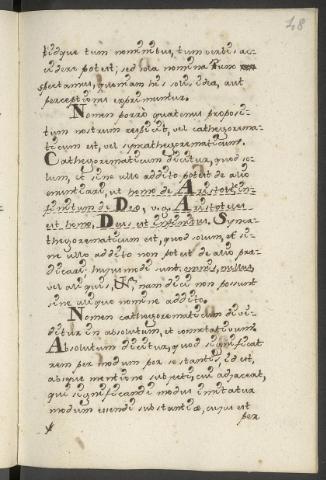 48
tidque tum nominibus, tum verbis, ac-
cidere potest; sed sola nomina Nunc
spectamus, quoniam his solis idea, aut
perceptiones exprimuntur.
Nomen porrò quatenus proposi-
tum nostrum respicit, vel cathegorema-
ticum est, vel syncathegorematicum.
Cathegorematicum dicitur, quod so-
lum, et sine ullo addito potest de alio
enuntiari, ut homo de Aristotele, in-
finitum de Deo, v.g. Aristoteles
est homo, Deus est infinitus. Synca-
thegorematicum est, quod solum, et si-
ne ullo addito non potest de alio præ-
dicari hujusmodi sunt omnis, nullus,
vel aliquis, nam dici non possunt
sine aliquo nomine addito.
Nomen cathegorematicum divi-
ditur in absolutum, et connotativum.
Absolutum dicitur, quod significat
rem per modum per se stantis, id est,
absque mentione subjecti, cui adjaceat,
qui significandi modus imitatur
modum essendi substantiæ, cujus est
per